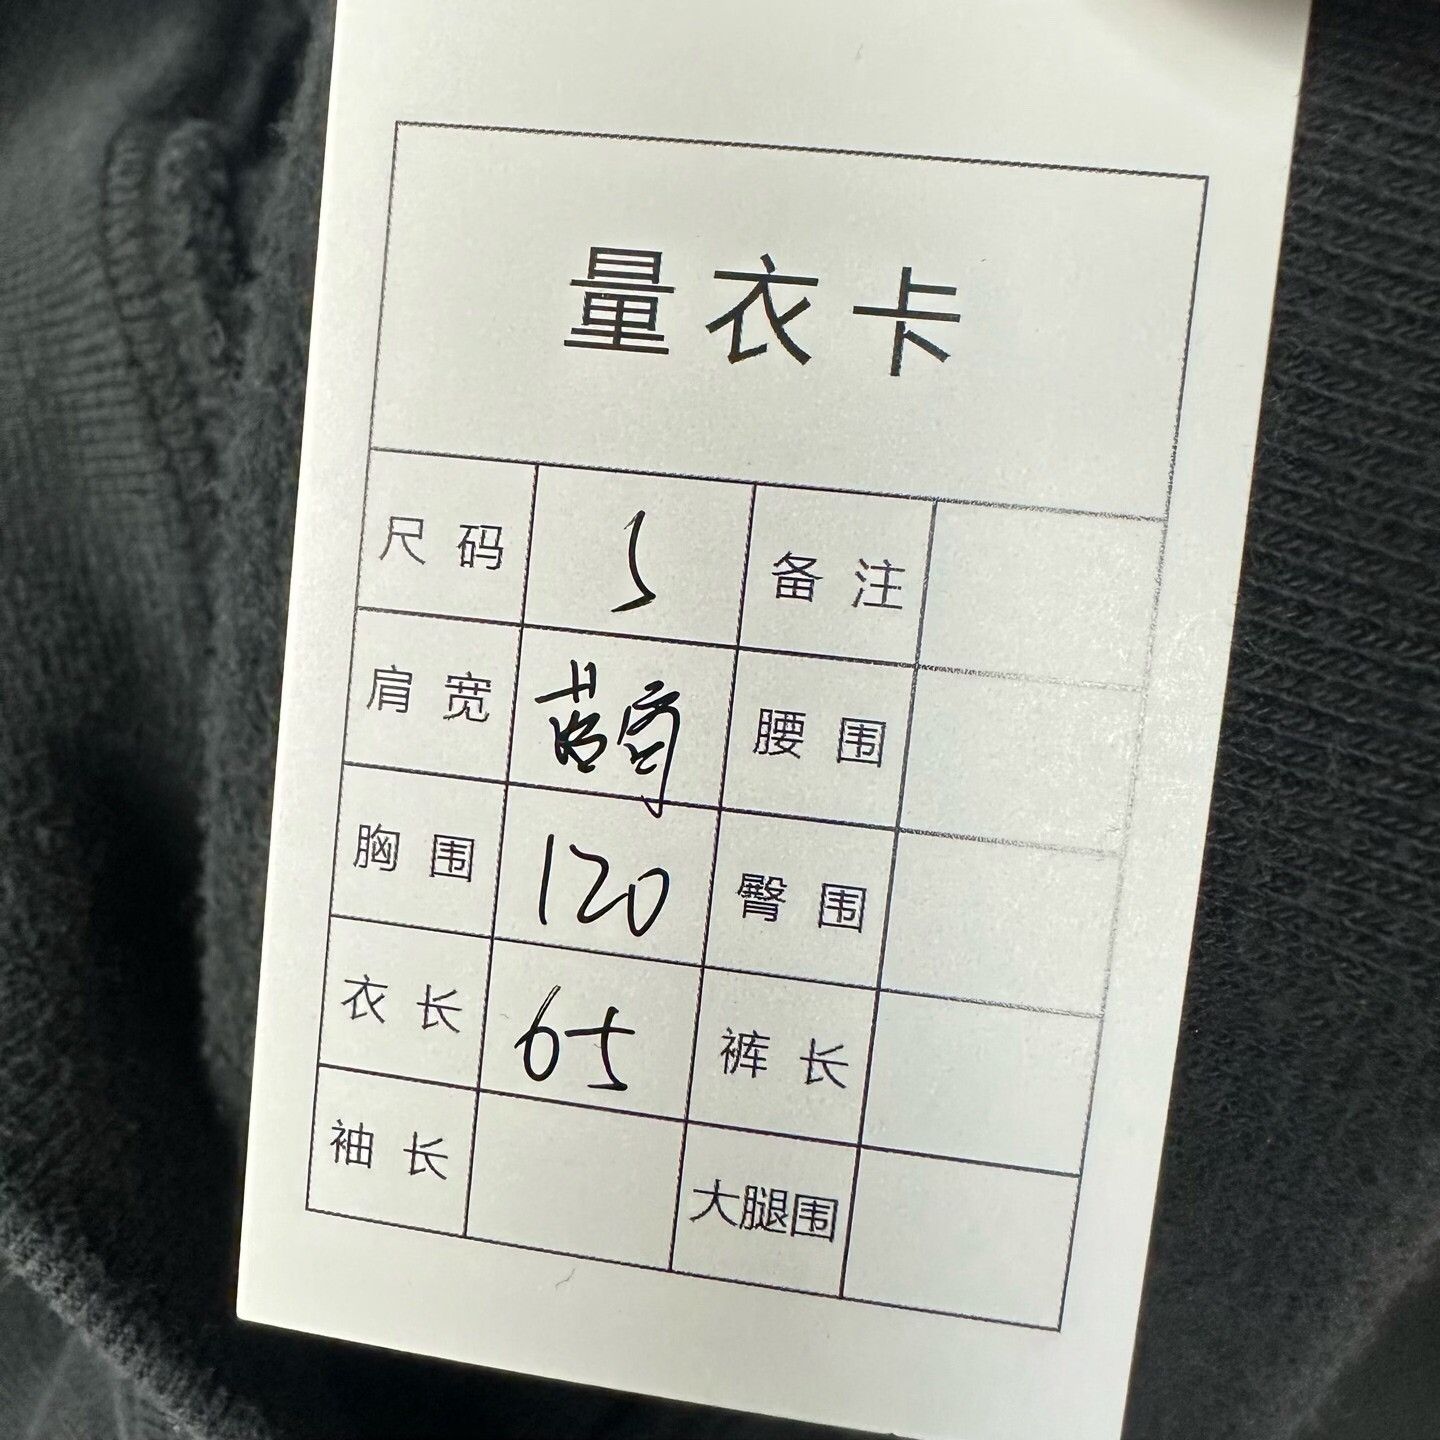 量衣卡
尺码 S 备注
肩宽 落肩 腰围
胸围 120 臀围
衣长 65 裤长
袖长 大腿围